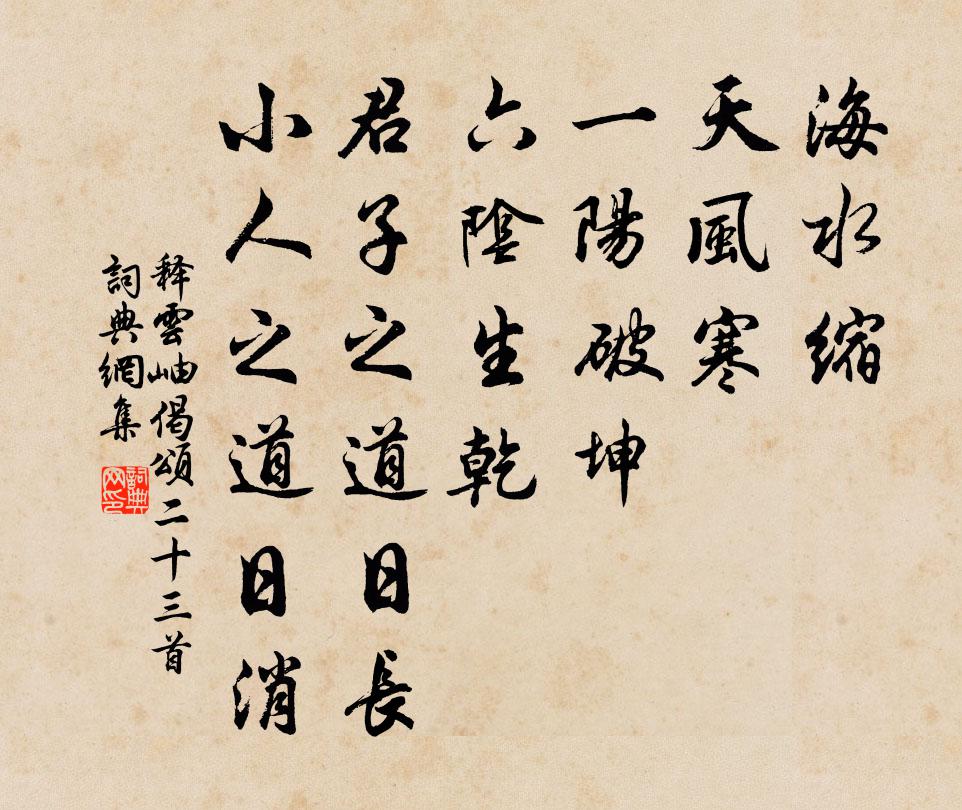 海水縮
天風寒
一陽破坤
六陰生乾
君子之道日長
小人之道日消
释雲岫偈頌二十三首
詞典網集
詞典网印